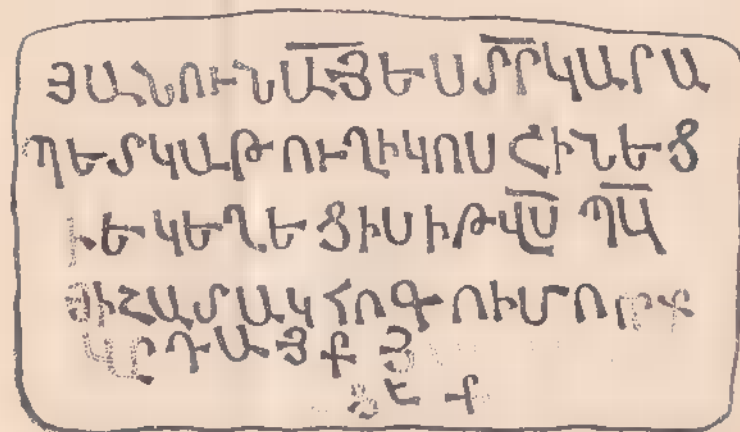 ՅԱՆՈՒՆ ԱՅ ԵՍ ՏՐ ԿԱՐԱ
ՊԵՏ ԿԱԹՈՒՂԻԿՈՍ ՇԻՆԵՑ
Ի ԵԿԵՂԵՑԻՍ Ի ԹՎՍ ՊԿ
ՅԻՇԱՏԱԿ ՀՈԳՈՒՄ ՈՐՔ
ԿԱՐԴԱՅՔ Յ
ՑԵՔ